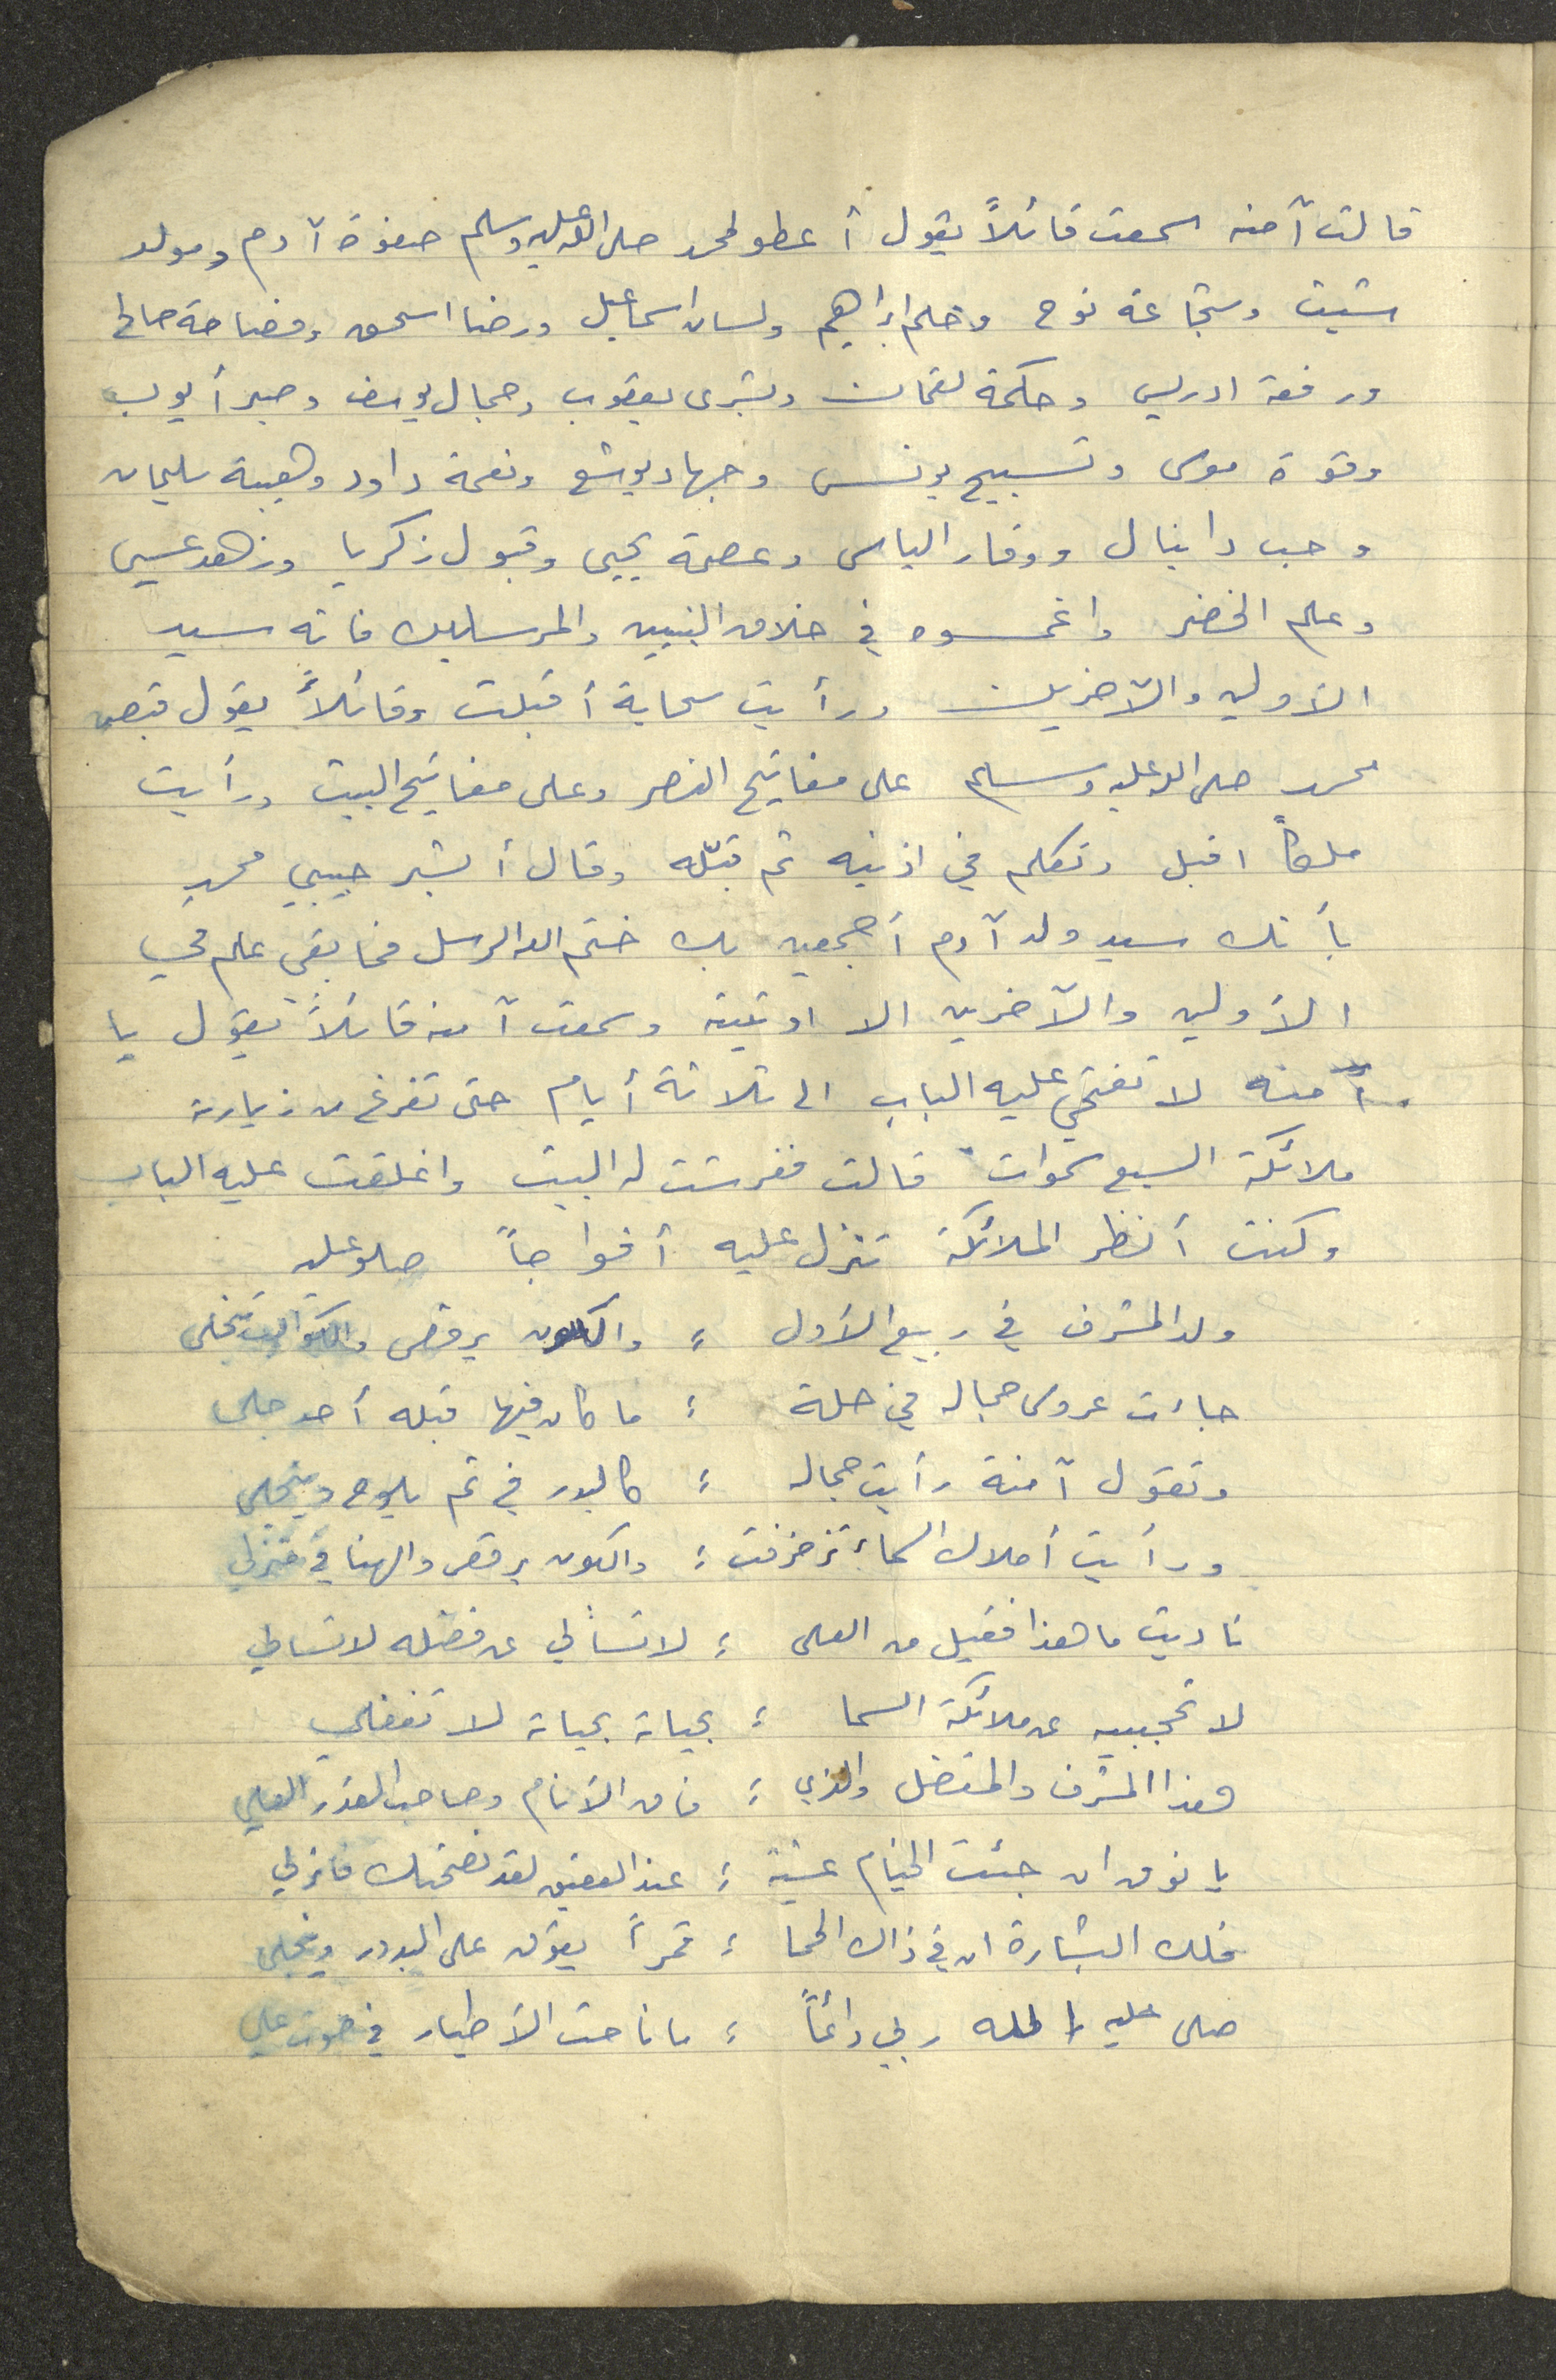 قالت آمنه سمعت قائلاً يقول أعطو لمحمد صلى الله عليه وسلم صفوة آدم ومولد
شيت وشجاعة نوح وحلم ابراهيم ولسان اسماعيل ورضا اسحق وفصاحة صالح
ورفعة ادريس وحكمة لقمان وبشرى يعقوب وجمال يوسف وصبر أيوب
وقوة موسى وتسبيح يونس وجهاد يوشع ونغمة داود وهيبة سليمان
وحب دانيال ووقار الياس وعصمة يحيى وقبول زكريا وزهد عيسى
وعلم الخضر واغمسوه في خلاق النبيين والمرسلين فانه سيد
الأولين والآخرين ورأيت سحابة أقبلت وقائلاً يقول قبض
محمد صلى الله عليه وسلم على مفاتيح النصر وعلى مفاتيح البيت ورأيت
ملكاً اقبل وتكلم في اذنيه ثم قبّله وقال أبشر حبيبي محمد
بأنك سيد ولد آدم أجمعين بك ختم الله الرسل فما بقي علم في
الأولين والآخرين الا اوتيته وسمعت آمنه قائلاً يقول يا
آمنه لا تفتحي عليه الباب الى ثلاثة أيام حتى تفرغ من زيارته
ملائكة السبع سموات قالت ففرشت له البيت واغلقت عليه الباب
وكنت أنظر الملائكة تنزل عليه أفواجاً صلو عليه
ولد المشرف في ربيع الأول ؛ والكون يرقص والكواكب تنجلى
جاءت عروس جماله في حلة ؛ ما كان فيها قبله أحد جلى
وتقول آمنة رأيت جماله ؛ كالبدر في تم يلوح وينجلى
ورأيت أملاك السماء تزخرفت ؛ والكون يرقص والهنا في منزلي
ناديت ما هذا فقيل من العلى ؛ لا تسألي عن فضله لا تسألي
لا تحجبيه عن ملائكة السما ؛ بحياته بحياته لا تغفلي
هذا المشرف والمفضل والذي ؛ فاق الأنام وصاحب القدر العلي
يا نوق ان جئت الخيام عشية ؛ عند العقيق لقد نصحتك فانزلي
فلك البشارة ان في ذاك الحما ؛ قمراً يفوق على البدور وينجلى
صلى عليه الله ربي دائماً ؛ ما ناحت الأطيار في صوت علي